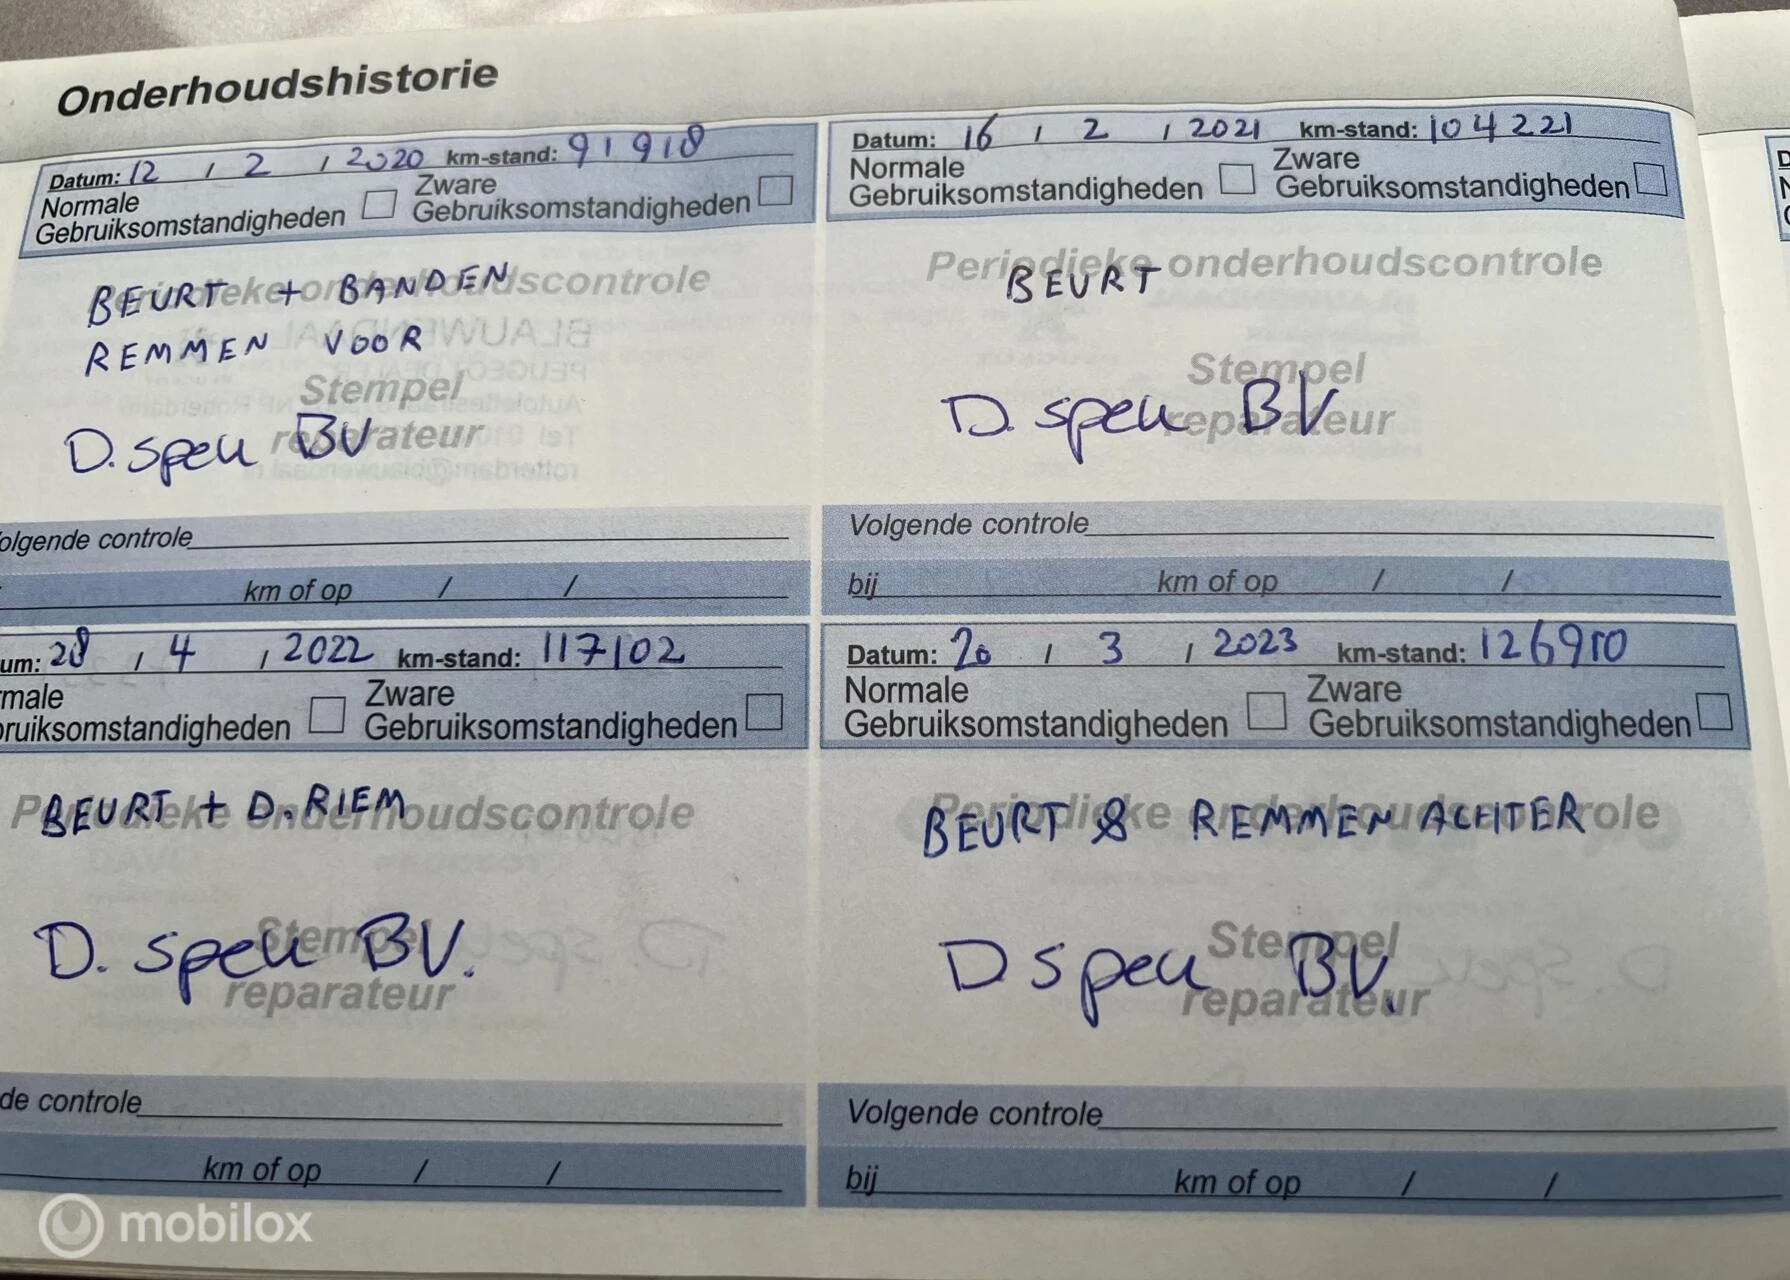 Onderhoudshistorie
Datum: 12 / 2 / 2020 km-stand: 91918
Normale
Gebruiksomstandigheden
Zware
Gebruiksomstandigheden
Periodieke onderhoudscontrole
BEURT + BANDEN
REMMEN VOOR
Stempel
reparateur
D. speu BV
olgende controle
km of op / /
Datum: 16 / 2 / 2021 km-stand: 104221
Normale
Gebruiksomstandigheden
Zware
Gebruiksomstandigheden
Periodieke onderhoudscontrole
BEURT
Stempel
reparateur
D. speu BV
Volgende controle
bij km of op / /
um: 28 / 4 / 2022 km-stand: 117102
male
ruiksomstandigheden
Zware
Gebruiksomstandigheden
Periodieke onderhoudscontrole
BEURT + D.RIEM
Stempel
reparateur
D. speu BV.
de controle
km of op / /
Datum: 20 / 3 / 2023 km-stand: 126910
Normale
Gebruiksomstandigheden
Zware
Gebruiksomstandigheden
Periodieke onderhoudscontrole
BEURT & REMMEN ACHTER
Stempel
reparateur
D speu BV.
Volgende controle
bij km of op / /
mobilox